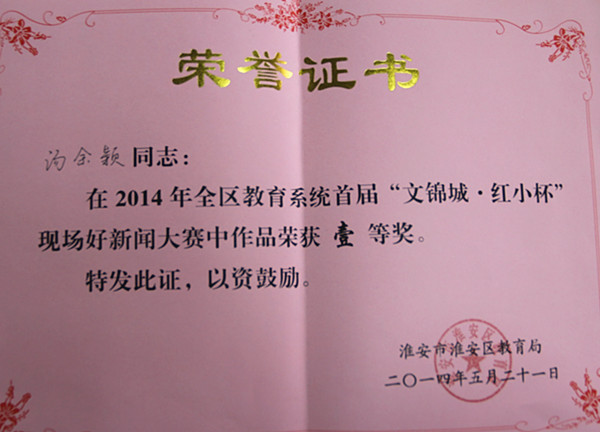 荣誉证书
汤余颖同志:
在2014年全区教育系统首届“文锦城·红小杯”
现场好新闻大赛中作品荣获 壹 等奖。
特发此证,以资鼓励。
淮安市淮安区教育局
二〇一四年五月二十一日